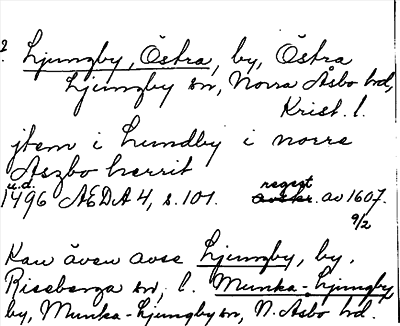 ? Ljungby, Östra, by, Östra
Ljungby sn, Norra Åsbo hd,
Krist. l.
jtem i Liundby i norre
Aszbo herrit
u.d.
1496 ÆDA 4, s. 101. regest av 1607.
9/2
Kan även avse Ljungby, by,
Riseberga sn, l. Munka-Ljungby,
by, Munka-Ljungby sn, N. Åsbo hd.